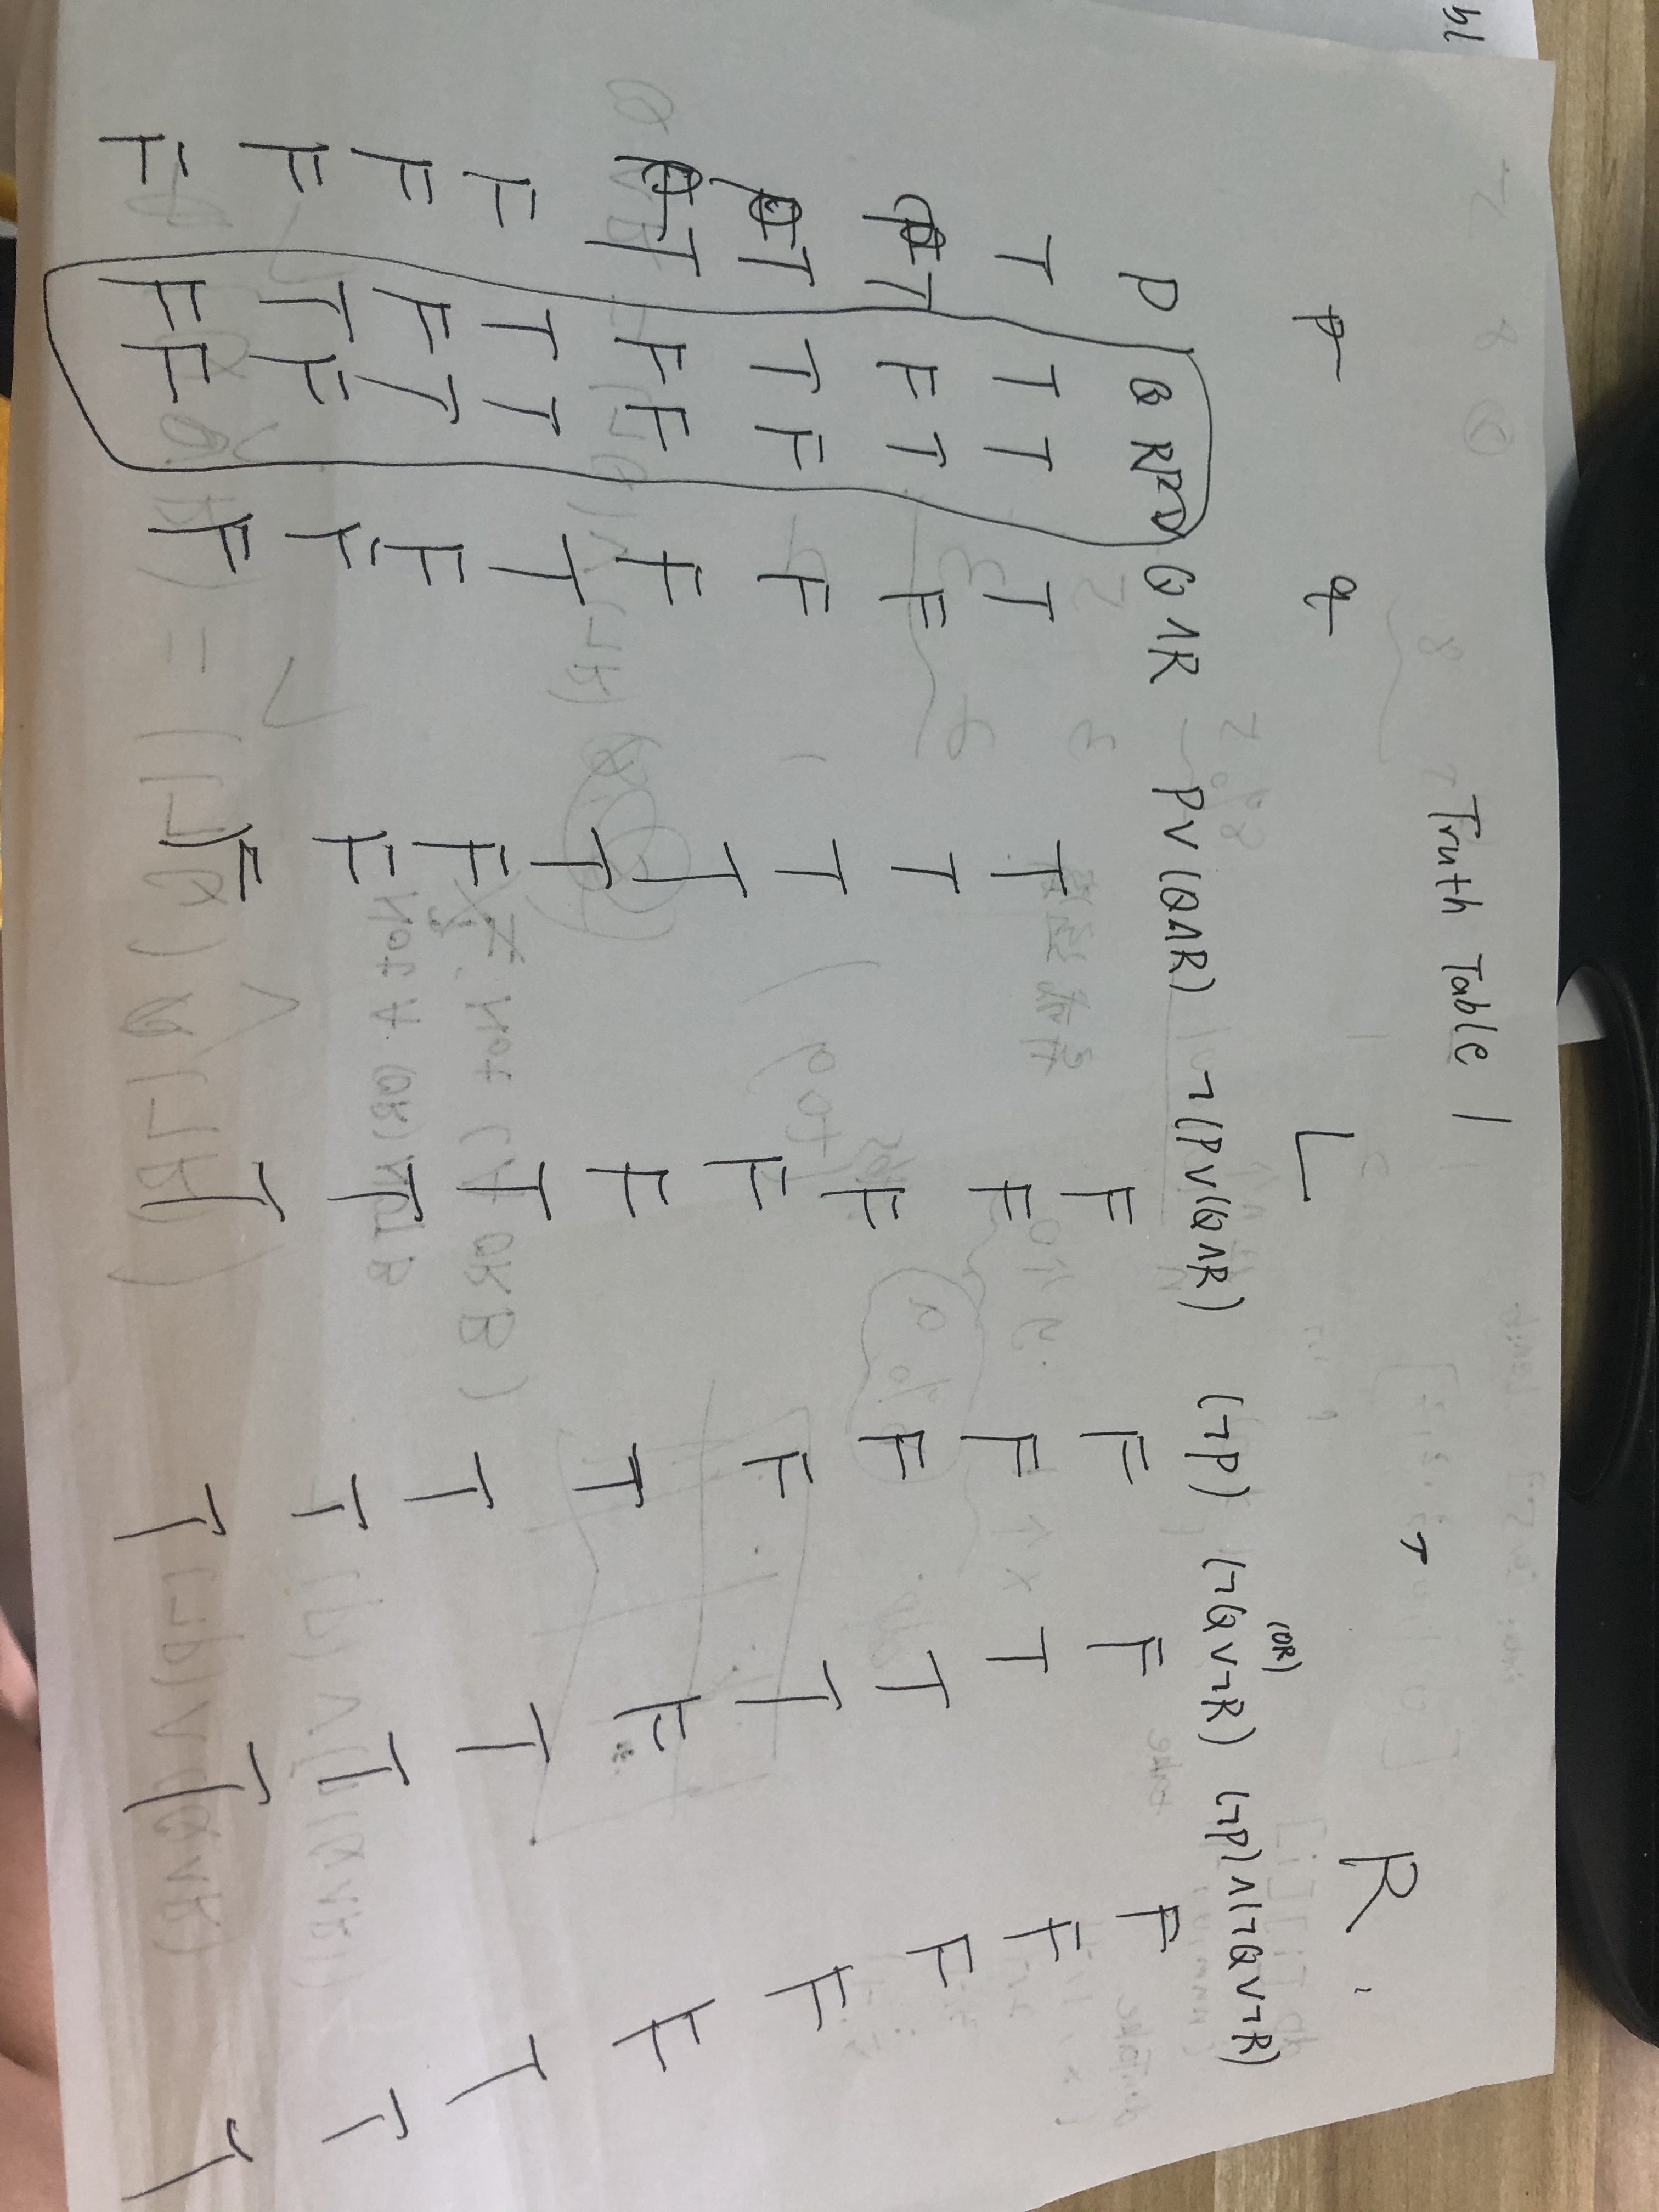 bl
Truth Table 1
P q L R
(OR)
P Q R Q∧R P∨(Q∧R) ¬(P∨(Q∧R) (¬P) (¬Q∨¬R) (¬P)∧(¬Q∨¬R)
T T T T T F F F F
T F T F T F F T F
T T F F T F F T F
T F F F T F F T F
F T T T T F T F F
F F T F F T T T T
F T F F F T T T T
F F F F F T T T T